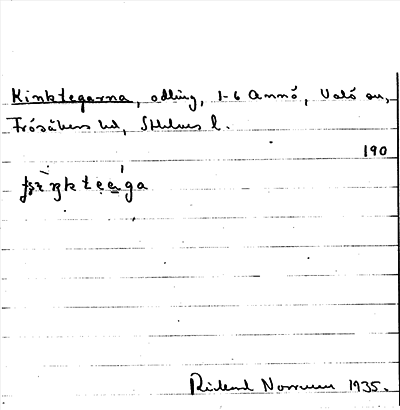 Kinktegarna, odling, 1-6 Annö, Valö sn,
Frösåkers hd, Sthlms l.
190
Rickard Norman 1935.